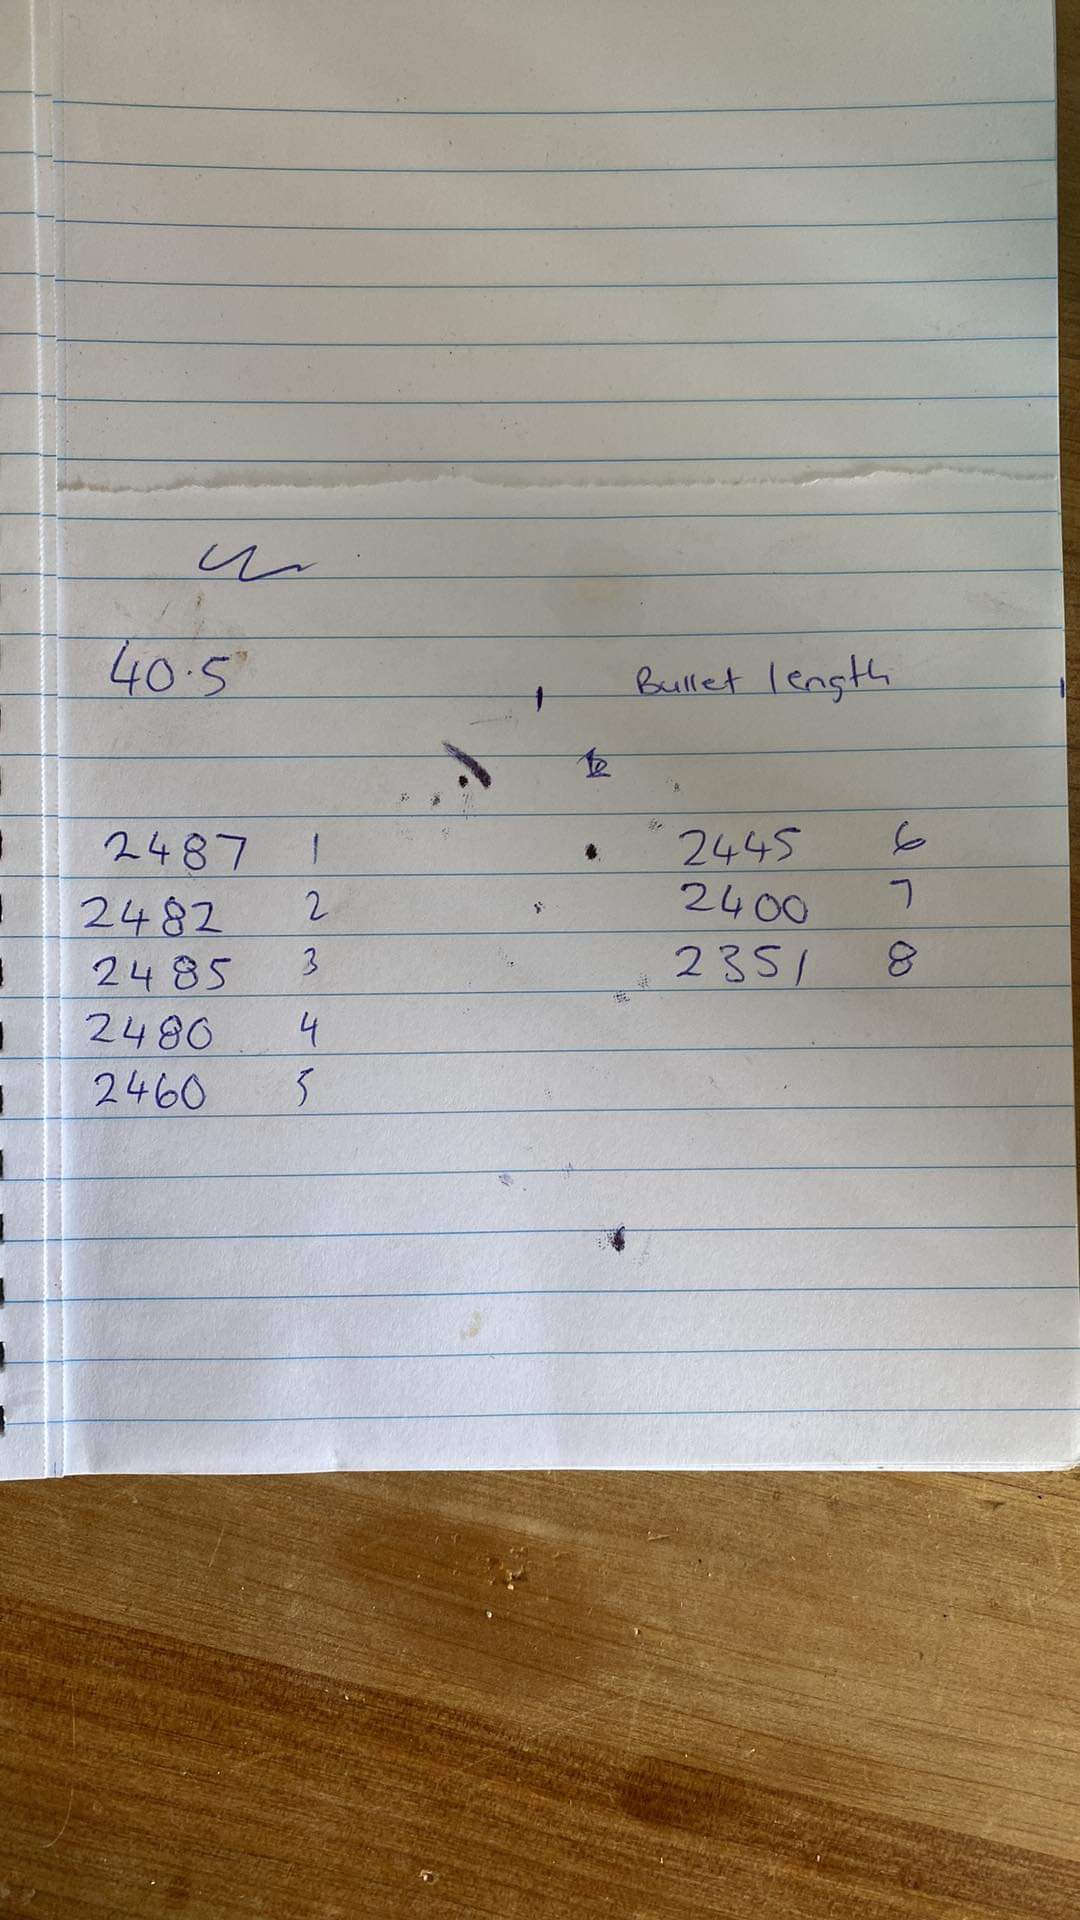 40.5
Bullet length
2487 1
2482 2
2485 3
2480 4
2460 5
2445 6
2400 7
2351 8